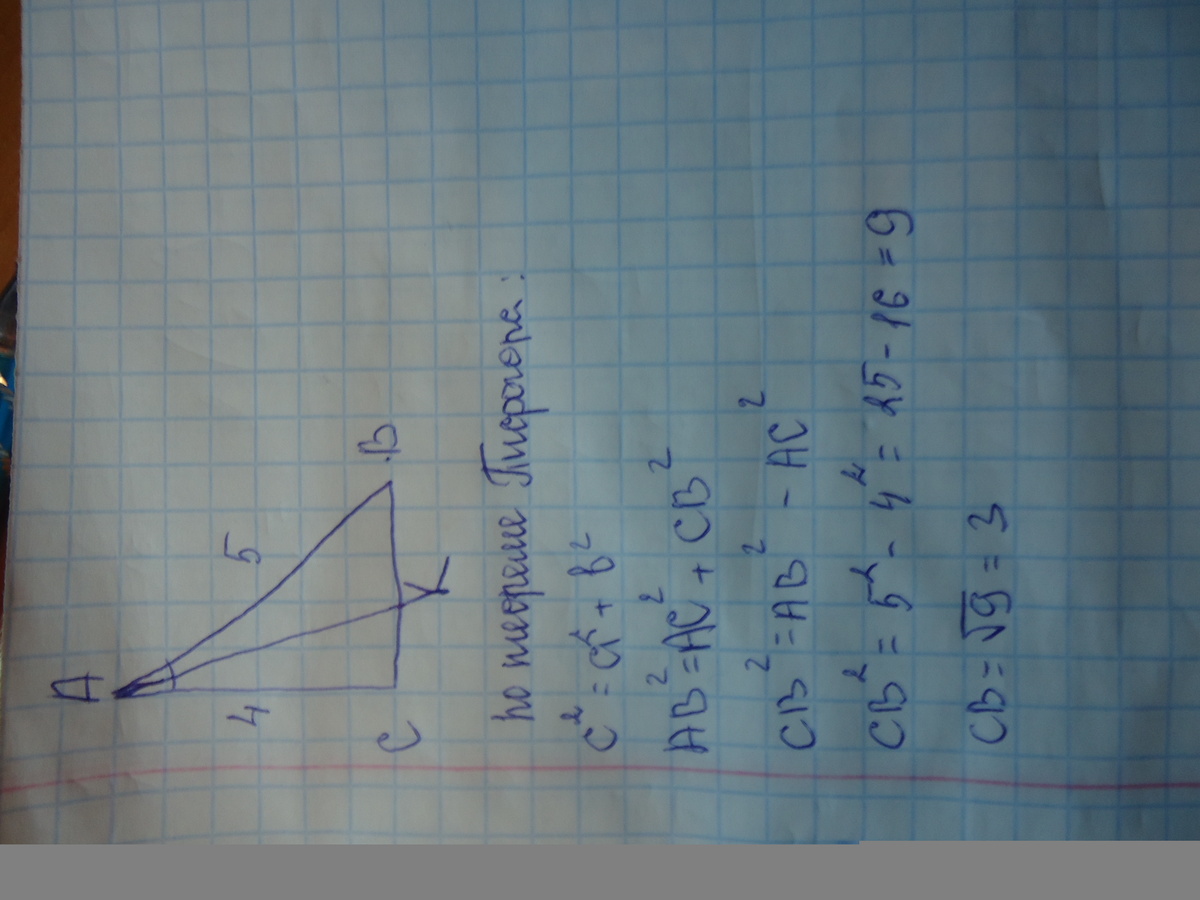 A
4
5
C
K
B
по теореме Пифагора:
c² = a² + b²
AB² = AC² + CB²
CB² = AB² - AC²
CB² = 5² - 4² = 25 - 16 = 9
CB = √9 = 3